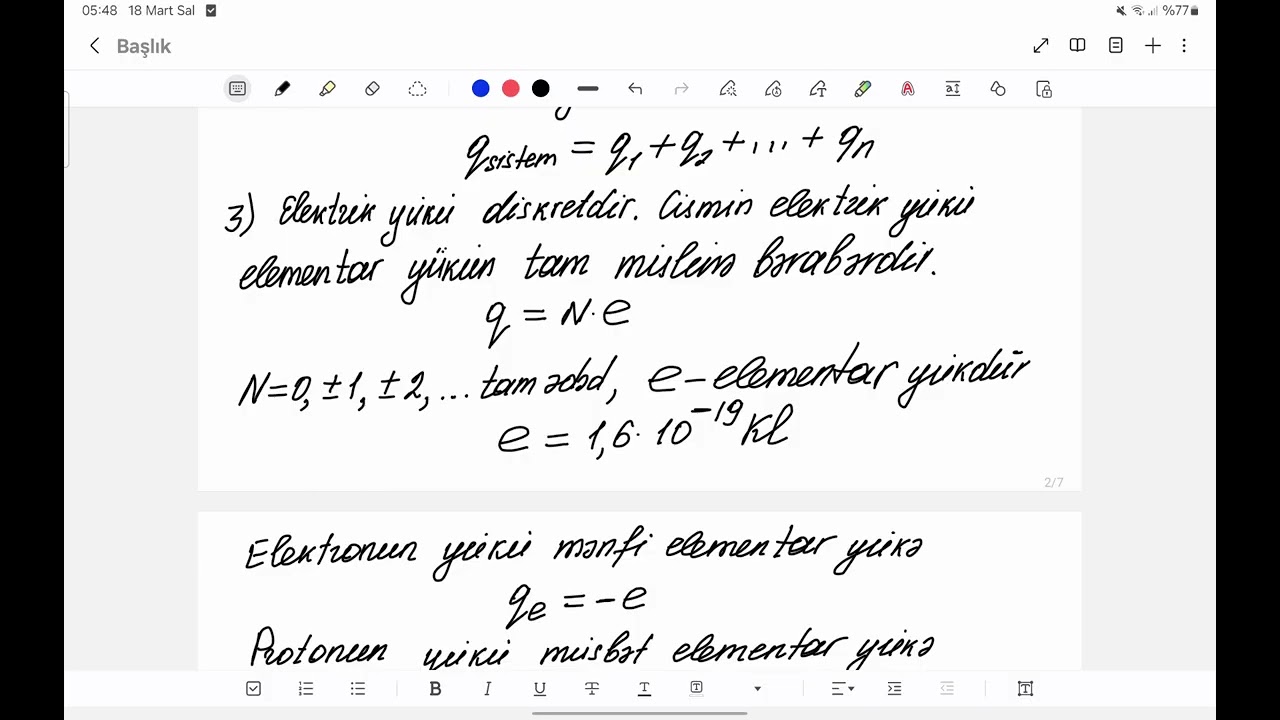 05:48 18 Mart Sal %77
Başlık
qsistem = q₁ + q₂ + ... + qn
3) Elektrik yükü diskretdir. Cismin elektrik yükü
elementar yükün tam mislinə bərabərdir.
q = N·e
N=0, ±1, ±2, ... tam ədəd, e – elementar yükdür
e = 1,6·10⁻¹⁹ Kl
2/7
Elektronun yükü mənfi elementar yükə
qe = –e
Protonun yükü müsbət elementar yükə
B I U T T T